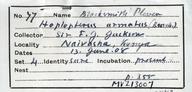 No. 47 Name Blacksmith Plover
Hoplopterus armatus (Burch.)
Collector Sir F. J. Jackson
Locality Naivasha, Kenya
Date 13. June. 08
Set 4 Identity sure Incubation fresh
p. 155
MVZ13007